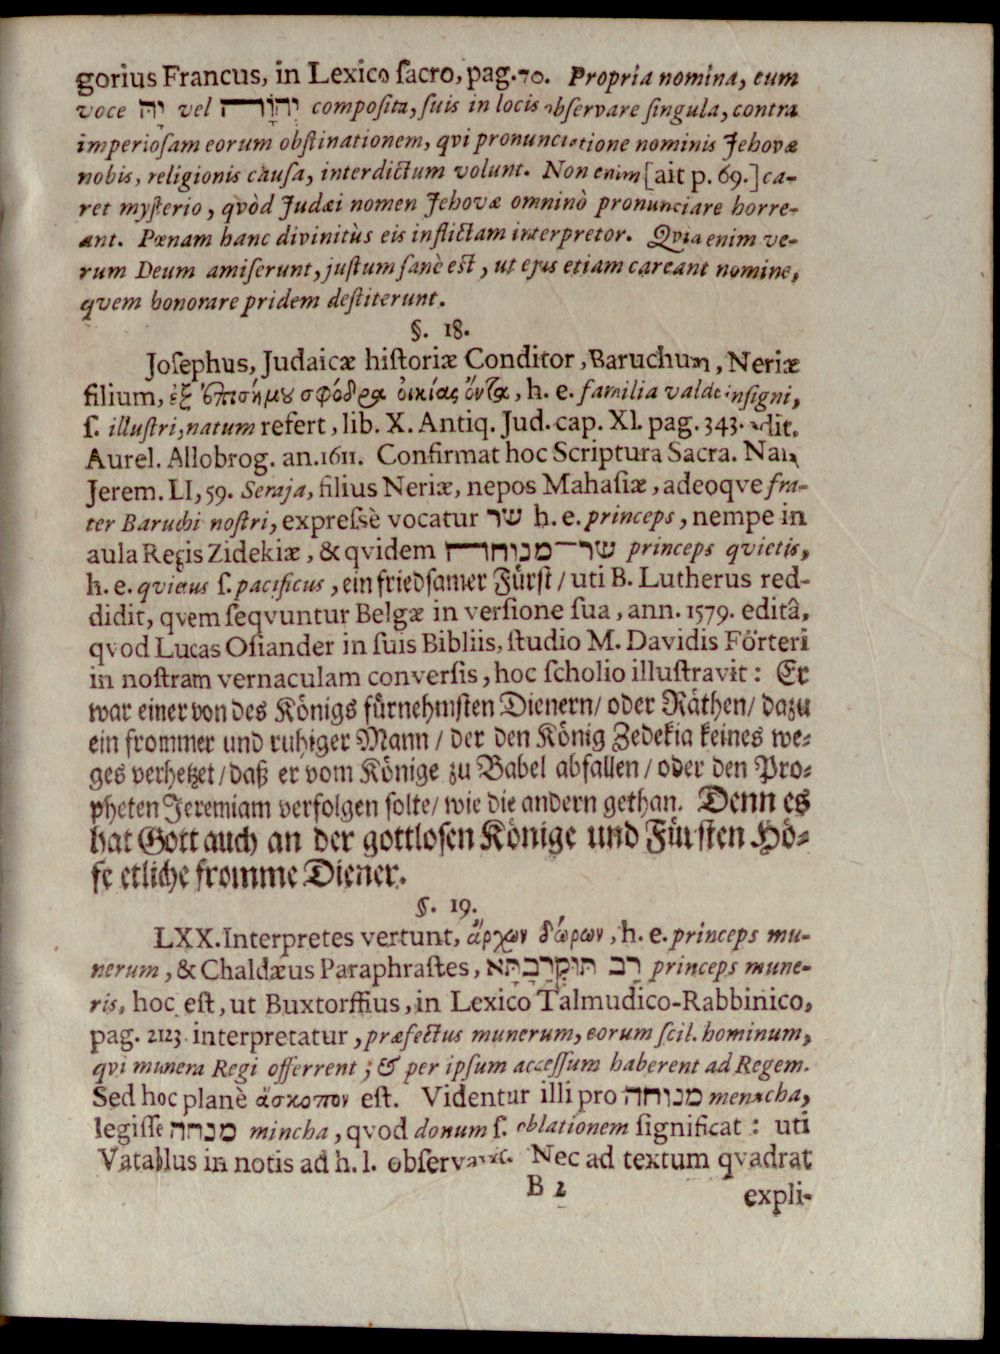 gorius Francus, in Lexico ſacro, pag. 70. Propria nomina, cum
voce יָהּ vel יְהֹוָה compoſita, ſuis in locis obſervare ſingula, contra
imperioſam eorum obſtinationem, qvi pronunciatione nominis Jehovæ
nobis, religionis cauſa, interdictum volunt. Non enim [ait p. 69.] ca-
ret myſterio, qvòd Judæi nomen Jehovæ omninò pronunciare horre-
ant. Pœnam hanc divinitùs eis inflictam interpretor. Qvia enim ve-
rum Deum amiſerunt, juſtum ſanè eſt, ut ejus etiam careant nomine,
qvem honorare pridem deſtiterunt.
§. 18.
Joſephus, Judaicæ hiſtoriæ Conditor, Baruchum, Neriæ
filium, ἐξ ἐπισήμου σφόδρα οἰκίας ὄντα, h. e. familia valde inſigni,
ſ. illuſtri, natum refert, lib. X. Antiq. Jud. cap. XI. pag. 343. edit.
Aurel. Allobrog. an. 1611. Confirmat hoc Scriptura Sacra. Nam
Jerem. LI, 59. Seraja, filius Neriæ, nepos Mahaſiæ, adeoqve fra-
ter Baruchi noſtri, expreſsè vocatur שר h. e. princeps, nempe in
aula Regis Zidekiæ, & qvidem שר־מנוחה princeps qvietis,
h. e. qvietus ſ. pacificus, ein friedſamer Fürſt / uti B. Lutherus red-
didit, qvem ſeqvuntur Belgæ in verſione ſua, ann. 1579. editâ,
qvod Lucas Oſiander in ſuis Bibliis, ſtudio M. Davidis Förteri
in noſtram vernaculam converſis, hoc ſcholio illuſtravit: Er
war einer von des Königs fürnehmſten Dienern / oder Räthen / dazu
ein frommer und ruhiger Mann / der den König Zedekia keines we-
ges verhetzet / daß er vom Könige zu Babel abfallen / oder den Pro-
pheten Jeremiam verfolgen ſolte / wie die andern gethan. Denn es
hat Gott auch an der gottloſen Könige und Fürſten Hö-
fe etliche fromme Diener.
§. 19.
LXX. Interpretes vertunt, ἄρχων δώρων, h. e. princeps mu-
nerum, & Chaldæus Paraphraſtes, רַב תּוּקְרַבְתָּא princeps mune-
ris, hoc eſt, ut Buxtorffius, in Lexico Talmudico-Rabbinico,
pag. 2123. interpretatur, præfectus munerum, eorum ſcil. hominum,
qvi munera Regi offerrent; & per ipſum acceſſum haberent ad Regem.
Sed hoc planè ἄσκοπον eſt. Videntur illi pro מנוחה menucha,
legiſſe מנחה mincha, qvod donum ſ. oblationem ſignificat: uti
Vatallus in notis ad h. l. obſervavit. Nec ad textum qvadrat
B 2
expli-